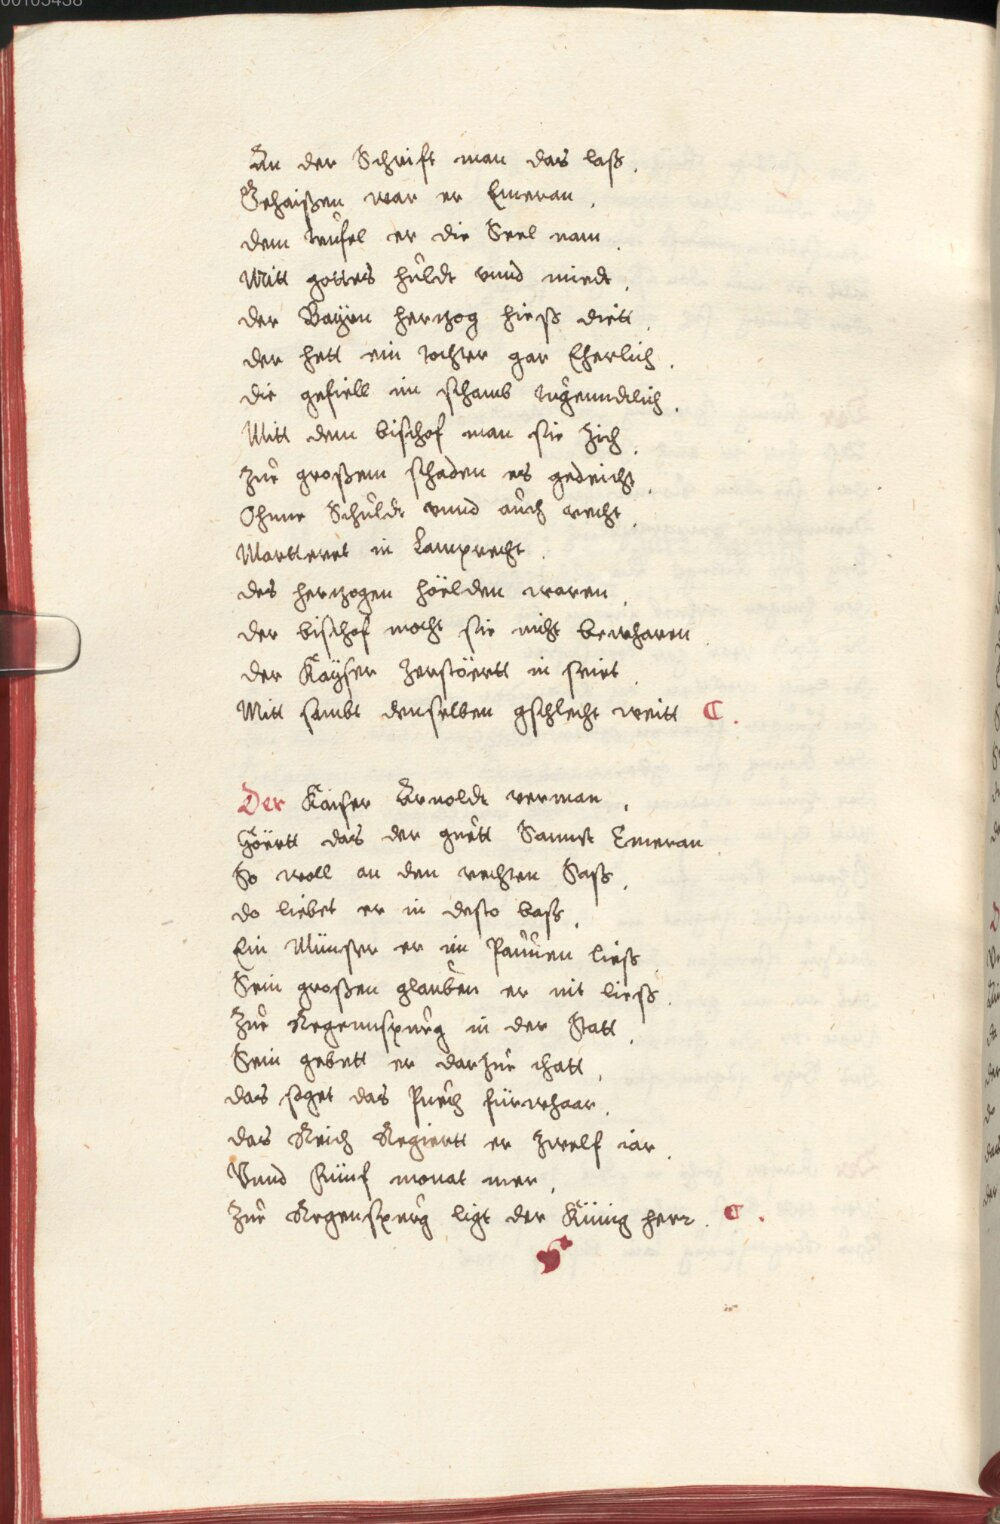 00105438
An der Schrift man das lass.
Gehaissen war er Emeran.
dem teufel er die Seel nam.
Mitt gottes huldt vnnd miedt.
der Bayrn hertzog hiess diett.
der hett ein tochter gar Eherlich.
die gefiell im schamb tugenndtlich.
Mitt dem bischof man sie zich.
Zue grossem schaden es gedeicht.
Ohnne Schuldt vnnd auch recht.
Martteret in Lamprecht.
des hertzogen höelden waren.
der bischof mocht sie nicht bewharen.
der Kayser zerstöertt in seint.
Mitt sambt denselben gschlecht weitt C.
Der Kaiser Arnoldt verman.
Höertt das der guett Sannct Emeran
So woll an den rechten Sass.
do liebet er in desto bass.
Ein Münster er im Pauuen liess
Sein grossen glauben er nit liess.
Zue Regennspurg in der Statt.
Sein gebett er darzue thatt.
das sget das Puech fürwhaar.
das Reich Regiertt er zwelf iar.
Vnnd Fünf monat mer.
Zue Regenspurg ligt der Künig herr. C.